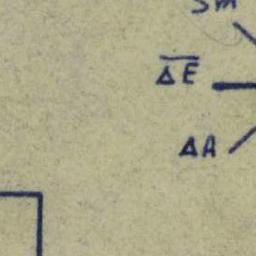 Sm
Δ̅E̅
ΔA